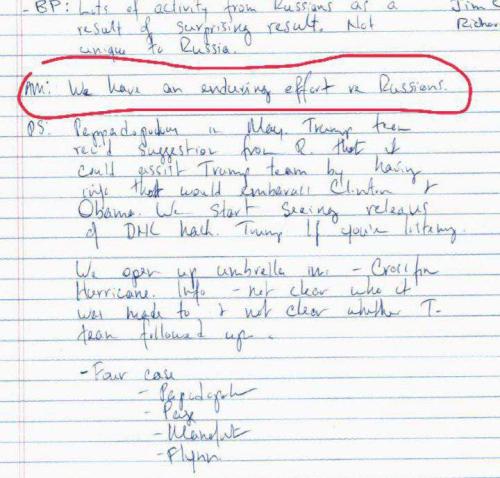 - BP: Lots of activity from Russians as a
result of surprising result. Not
unique to Russia.
Jim C
Richar
AM: We have an enduring effort re Russians.
PS: Pappadopoulos in May. Trump team
rec'd suggestion from R. that it
could assist Trump team by having
info that would embarrass Clinton &
Obama. We start seeing releases
of DNC hack. Trump If you're listening.
We open up umbrella inv. - Crossfire
Hurricane. Info - not clear who it
was made to & not clear whether T-
team followed up.
- Four case
- Papadopoulos
- Page
- Manafort
- Flynn